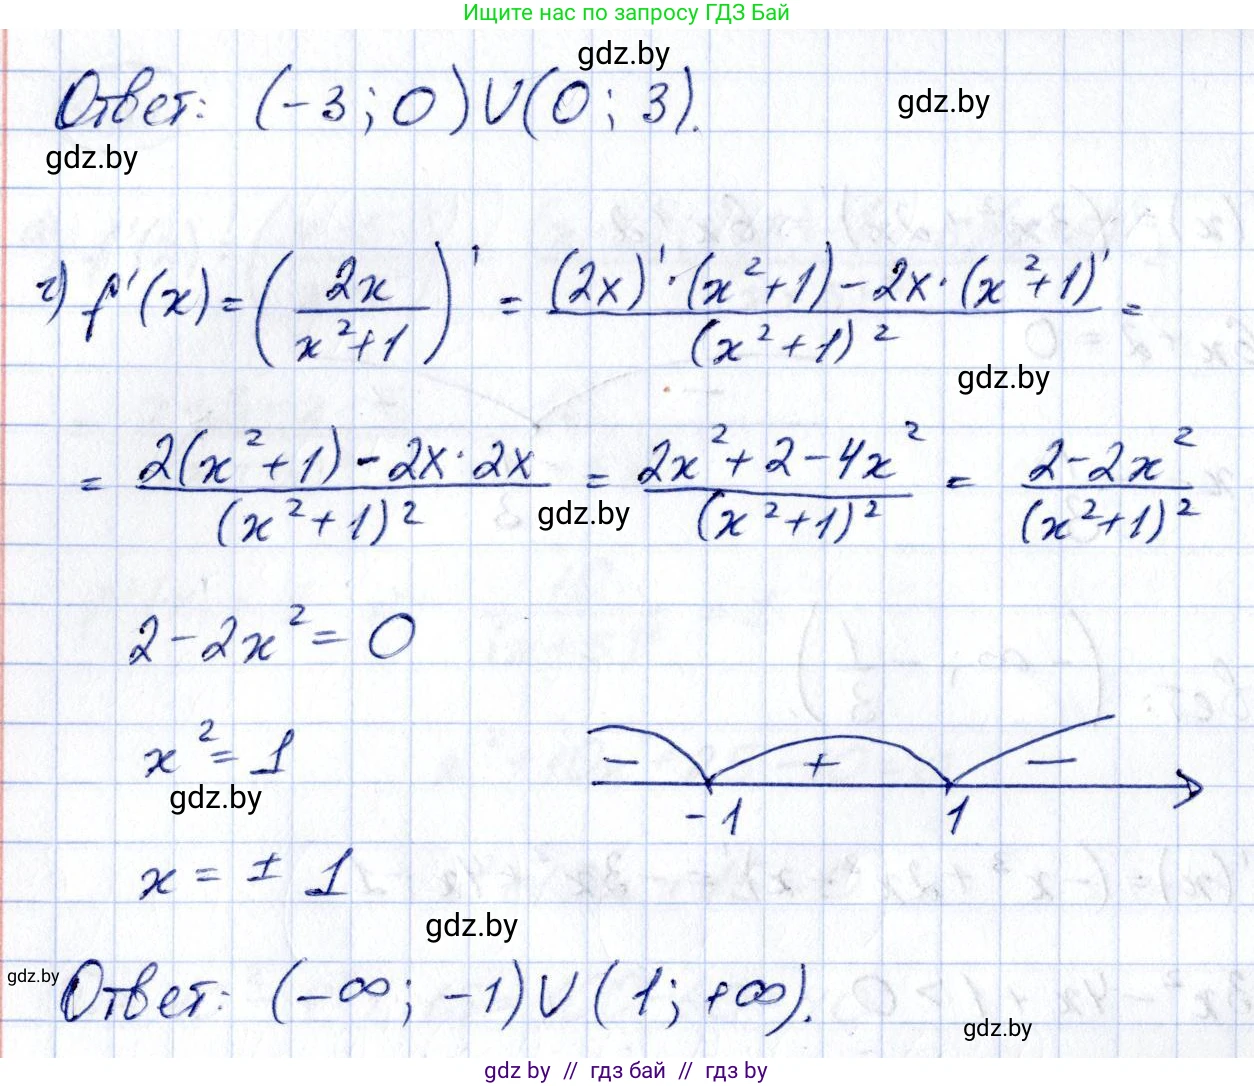 Ищите нас по запросу ГДЗ Бай
gdz.by
Ответ: (-3; 0) ∪ (0; 3).
gdz.by
gdz.by
г) f'(x) = (2x / (x²+1))' = ((2x)' · (x²+1) - 2x · (x²+1)') / (x²+1)² =
gdz.by
= (2(x²+1) - 2x · 2x) / (x²+1)² = (2x² + 2 - 4x²) / (x²+1)² = (2 - 2x²) / (x²+1)²
gdz.by
2 - 2x² = 0
x² = 1
- + -
-1 1
gdz.by
x = ± 1
gdz.by
gdz.by
Ответ: (-∞; -1) ∪ (1; +∞).
gdz.by
gdz by // гдз бай // gdz by